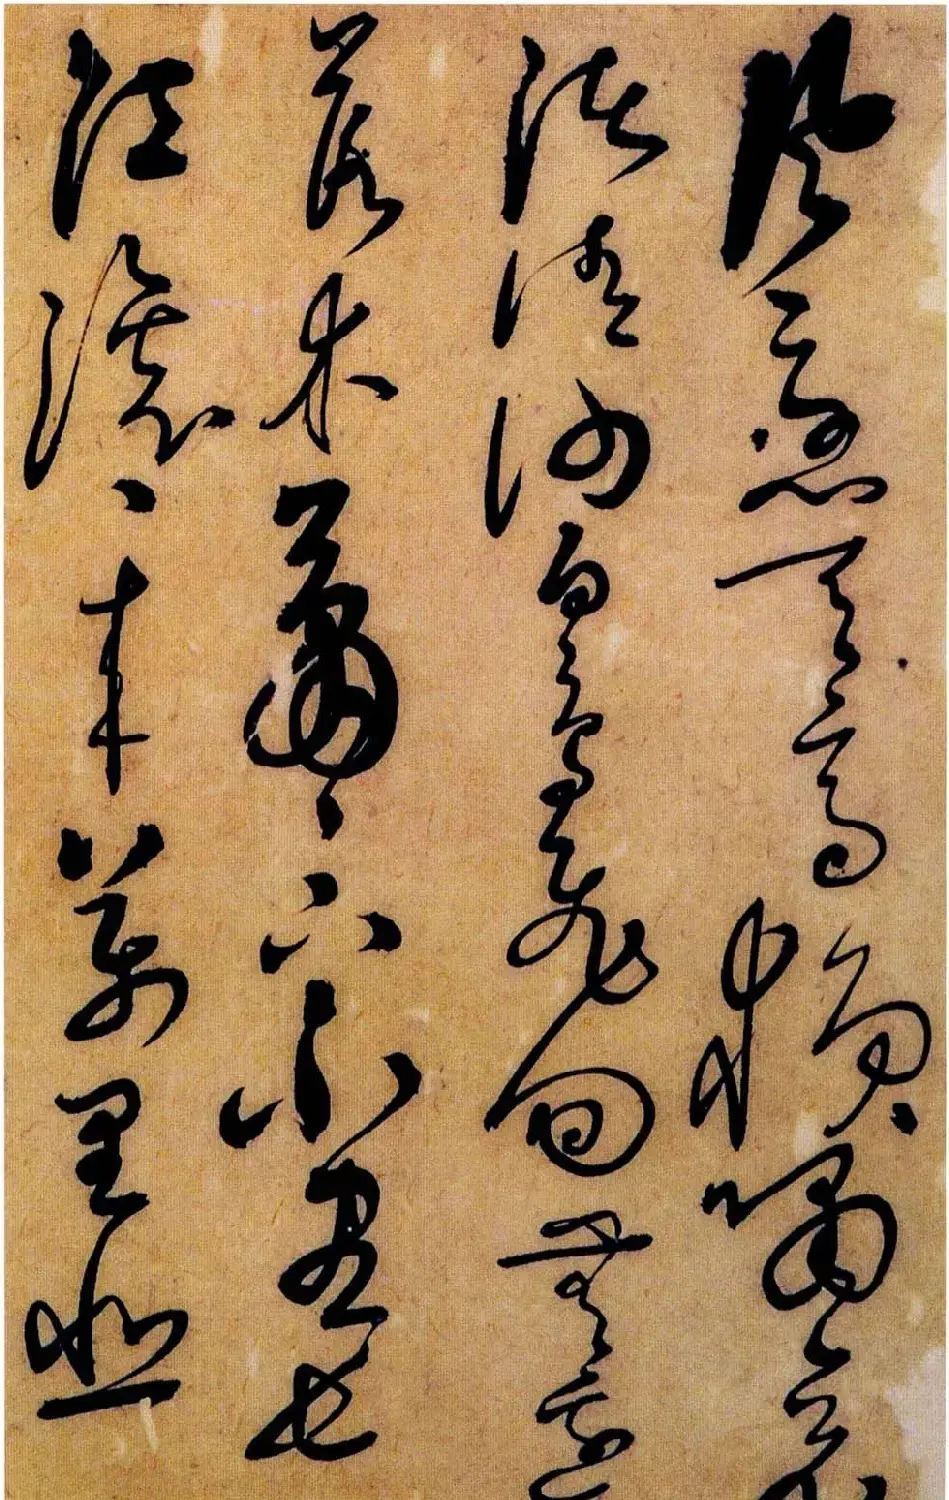 風急天高猿嘯哀
渚清沙白鳥飛回無邊
落木蕭々下不盡長
江滾々來萬里悲